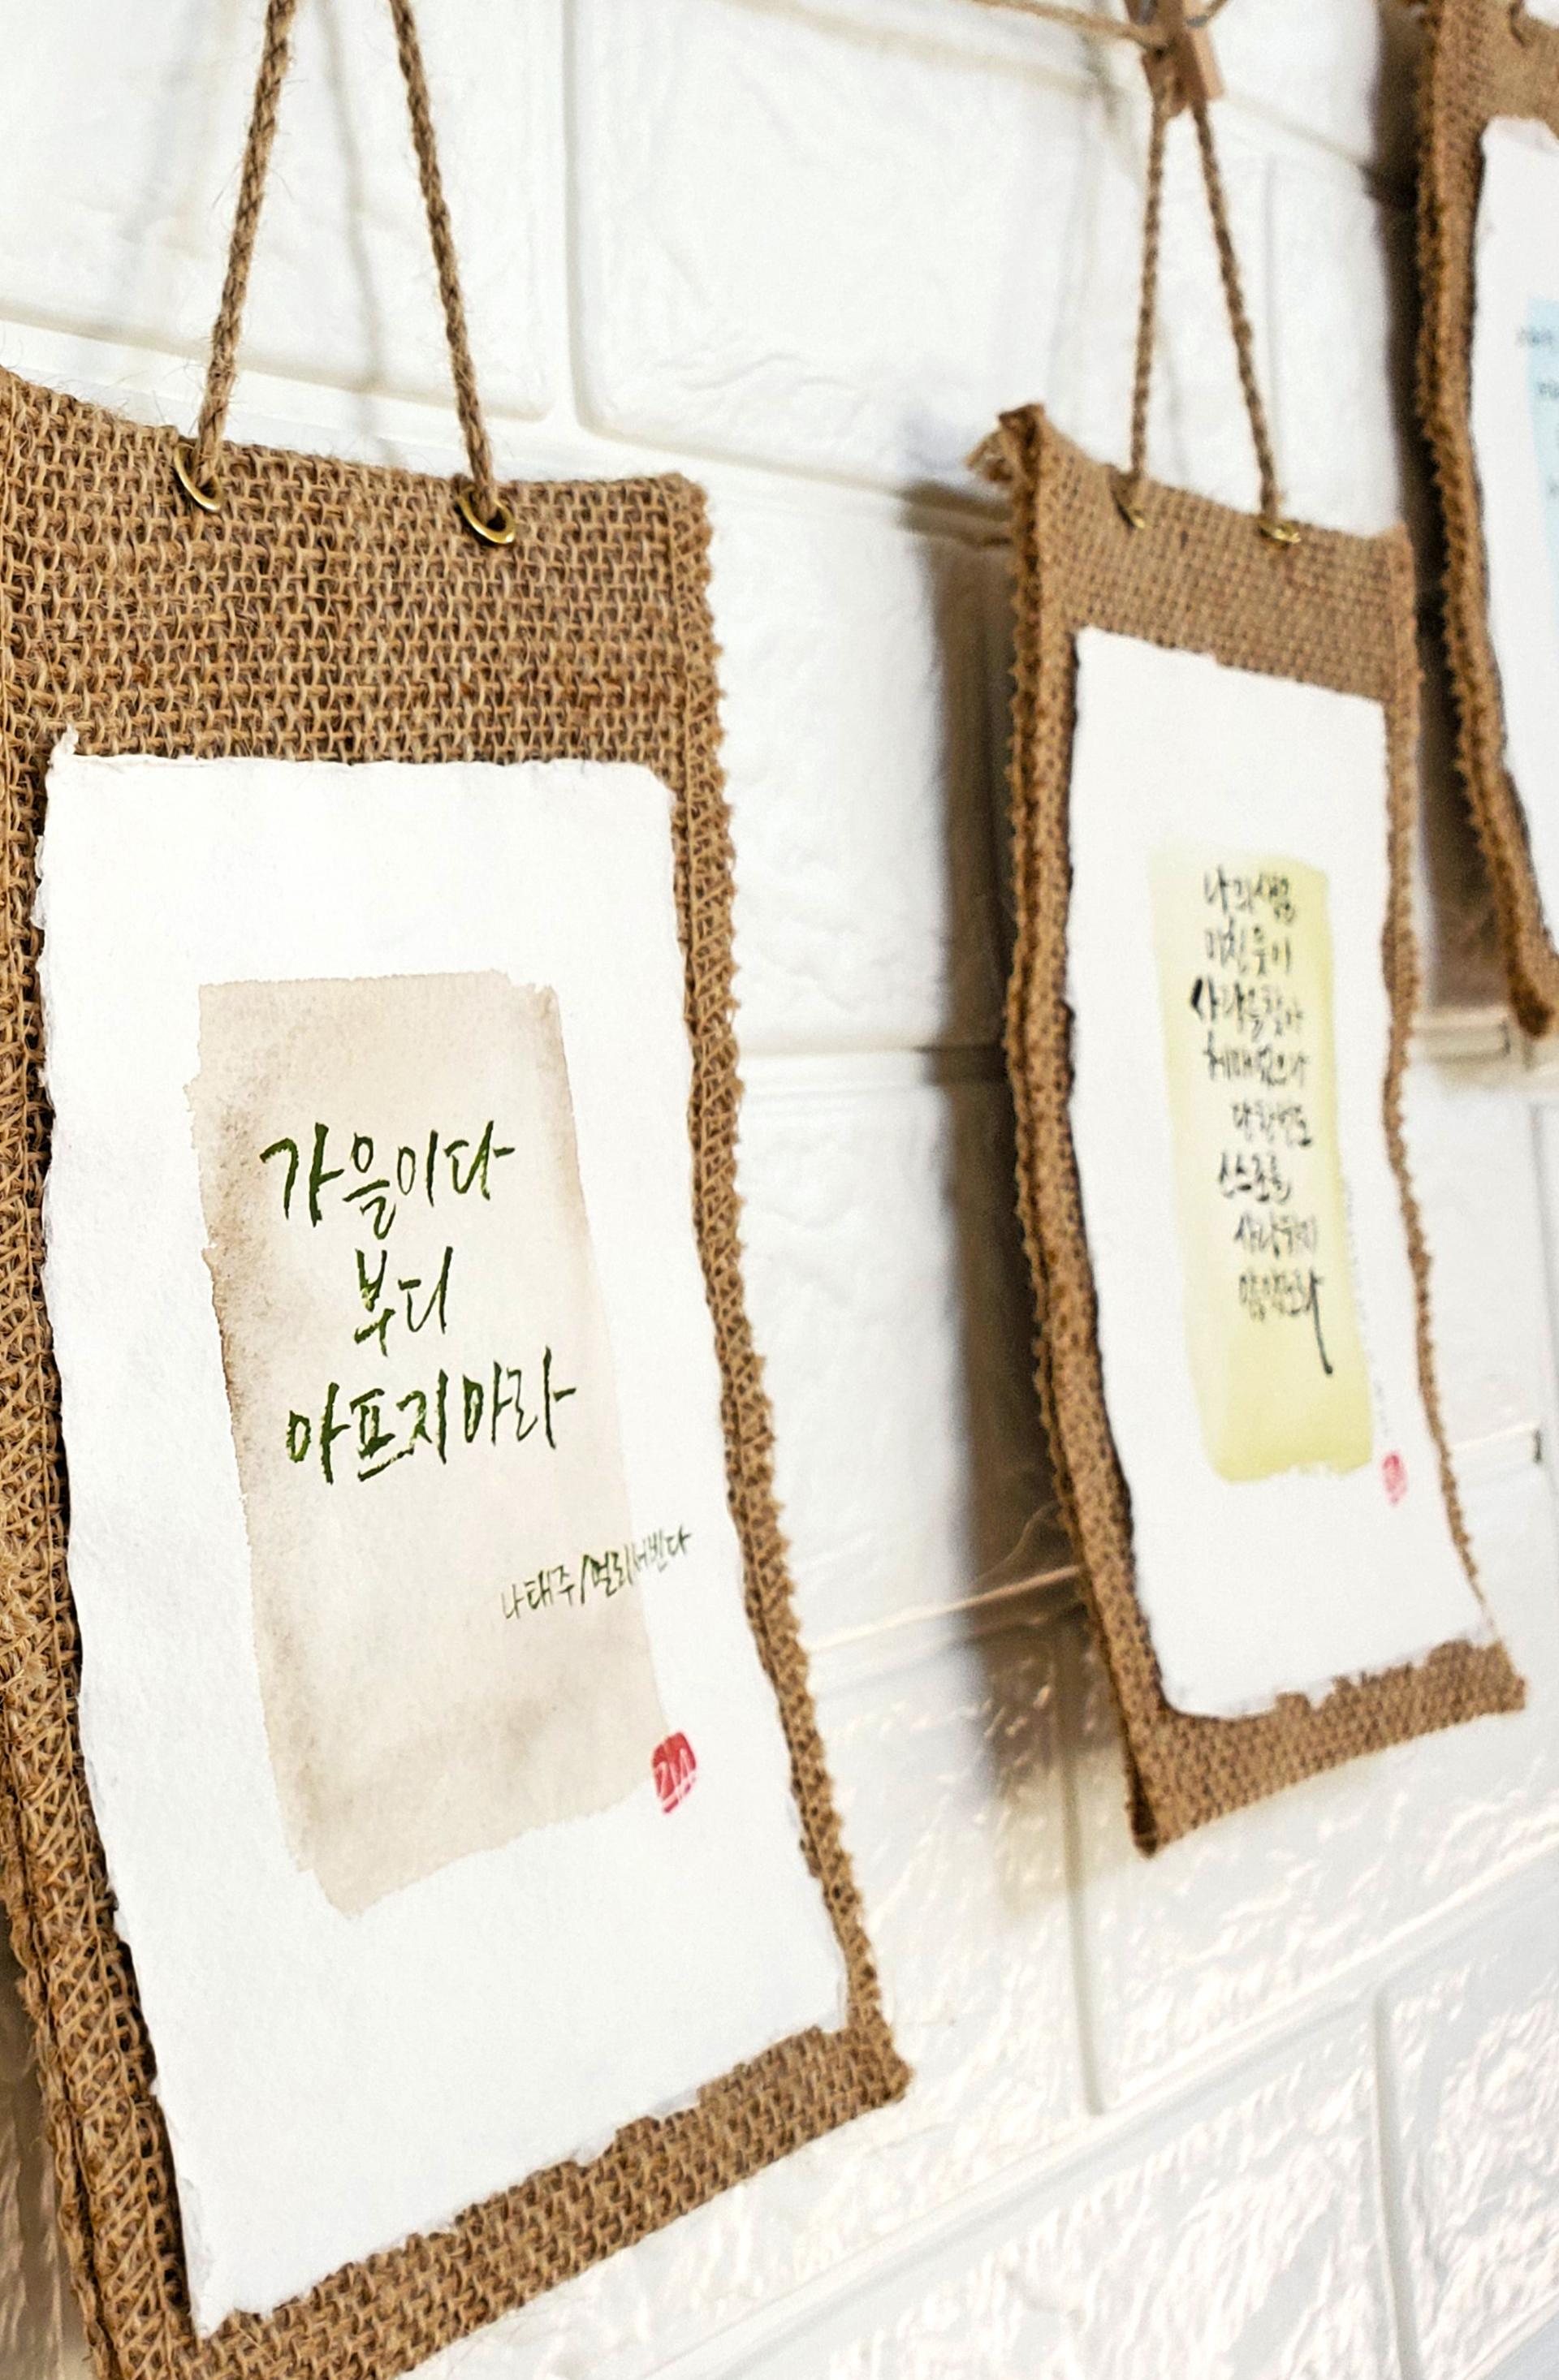 가을이다
부디
아프지마라
나태주/멀리서빈다
나의생은
미친듯이
사랑을찾아
헤매었으나
단한번도
스스로를
사랑하지
않았노라